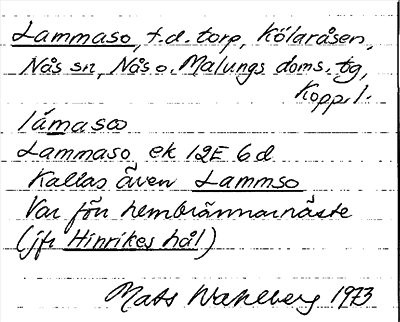 Lammaso, f.d. torp, Kölaråsen,
Nås sn, Nås o. Malungs doms. tg,
Kopp. l.
lámasω
Lammaso ek 12E 6d
Kallas även Lammso
Var förr hembrännarnäste
(jfr Hinrikes hål)
Mats Wahlberg 1973